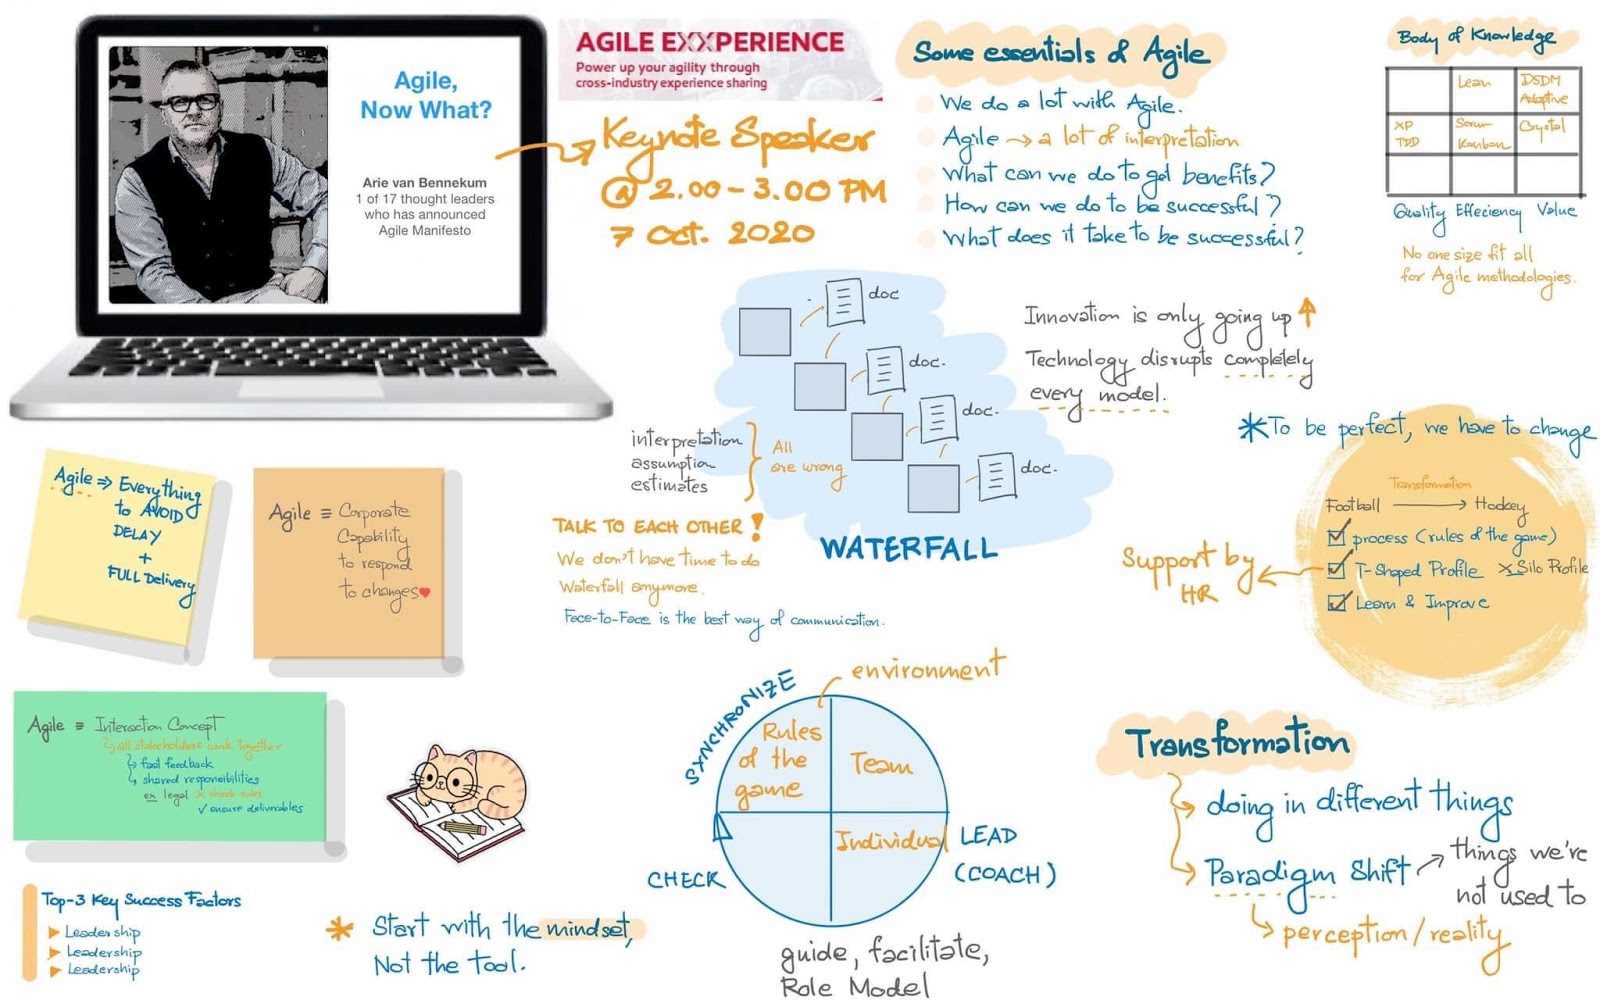 Agile,
Now What?
Arie van Bennekum
1 of 17 thought leaders
who has announced
Agile Manifesto
AGILE EXXPERIENCE
Power up your agility through
cross-industry experience sharing
Keynote Speaker
@ 2.00 - 3.00 PM
7 Oct. 2020
Some essentials of Agile
We do a lot with Agile.
Agile → a lot of interpretation
What can we do to get benefits?
How can we do to be successful?
What does it take to be successful?
Body of Knowledge
Lean
DSDM
Adaptive
XP
TDD
Scrum
Kanban
Crystal
Quality Effeciency Value
No one size fit all
for Agile methodologies.
doc
doc.
doc.
doc.
interpretation
assumption
estimates
All
are wrong
WATERFALL
TALK TO EACH OTHER!
We don't have time to do
Waterfall anymore.
Face-to-Face is the best way of communication.
Innovation is only going up ↑
Technology disrupts completely
every model.
*To be perfect, we have to change
Transformation
Football → Hockey
process (rules of the game)
T-Shaped Profile X Silo Profile
Learn & Improve
Support by
HR
Agile ⇒ Everything
to AVOID
DELAY
+
FULL Delivery
Agile ≡ Corporate
Capability
to respond
to changes
Agile ≡ Interaction Concept
all stakeholders work together
fast feedback
shared responsibilities
ex legal X check rules
✓ ensure deliverables
Top-3 Key Success Factors
Leadership
Leadership
Leadership
* Start with the mindset,
Not the tool.
SYNCHRONIZE
environment
Rules
of the
game
Team
Individual
LEAD
(COACH)
CHECK
guide, facilitate,
Role Model
Transformation
doing in different things
Paradigm Shift
things we're
not used to
perception/reality